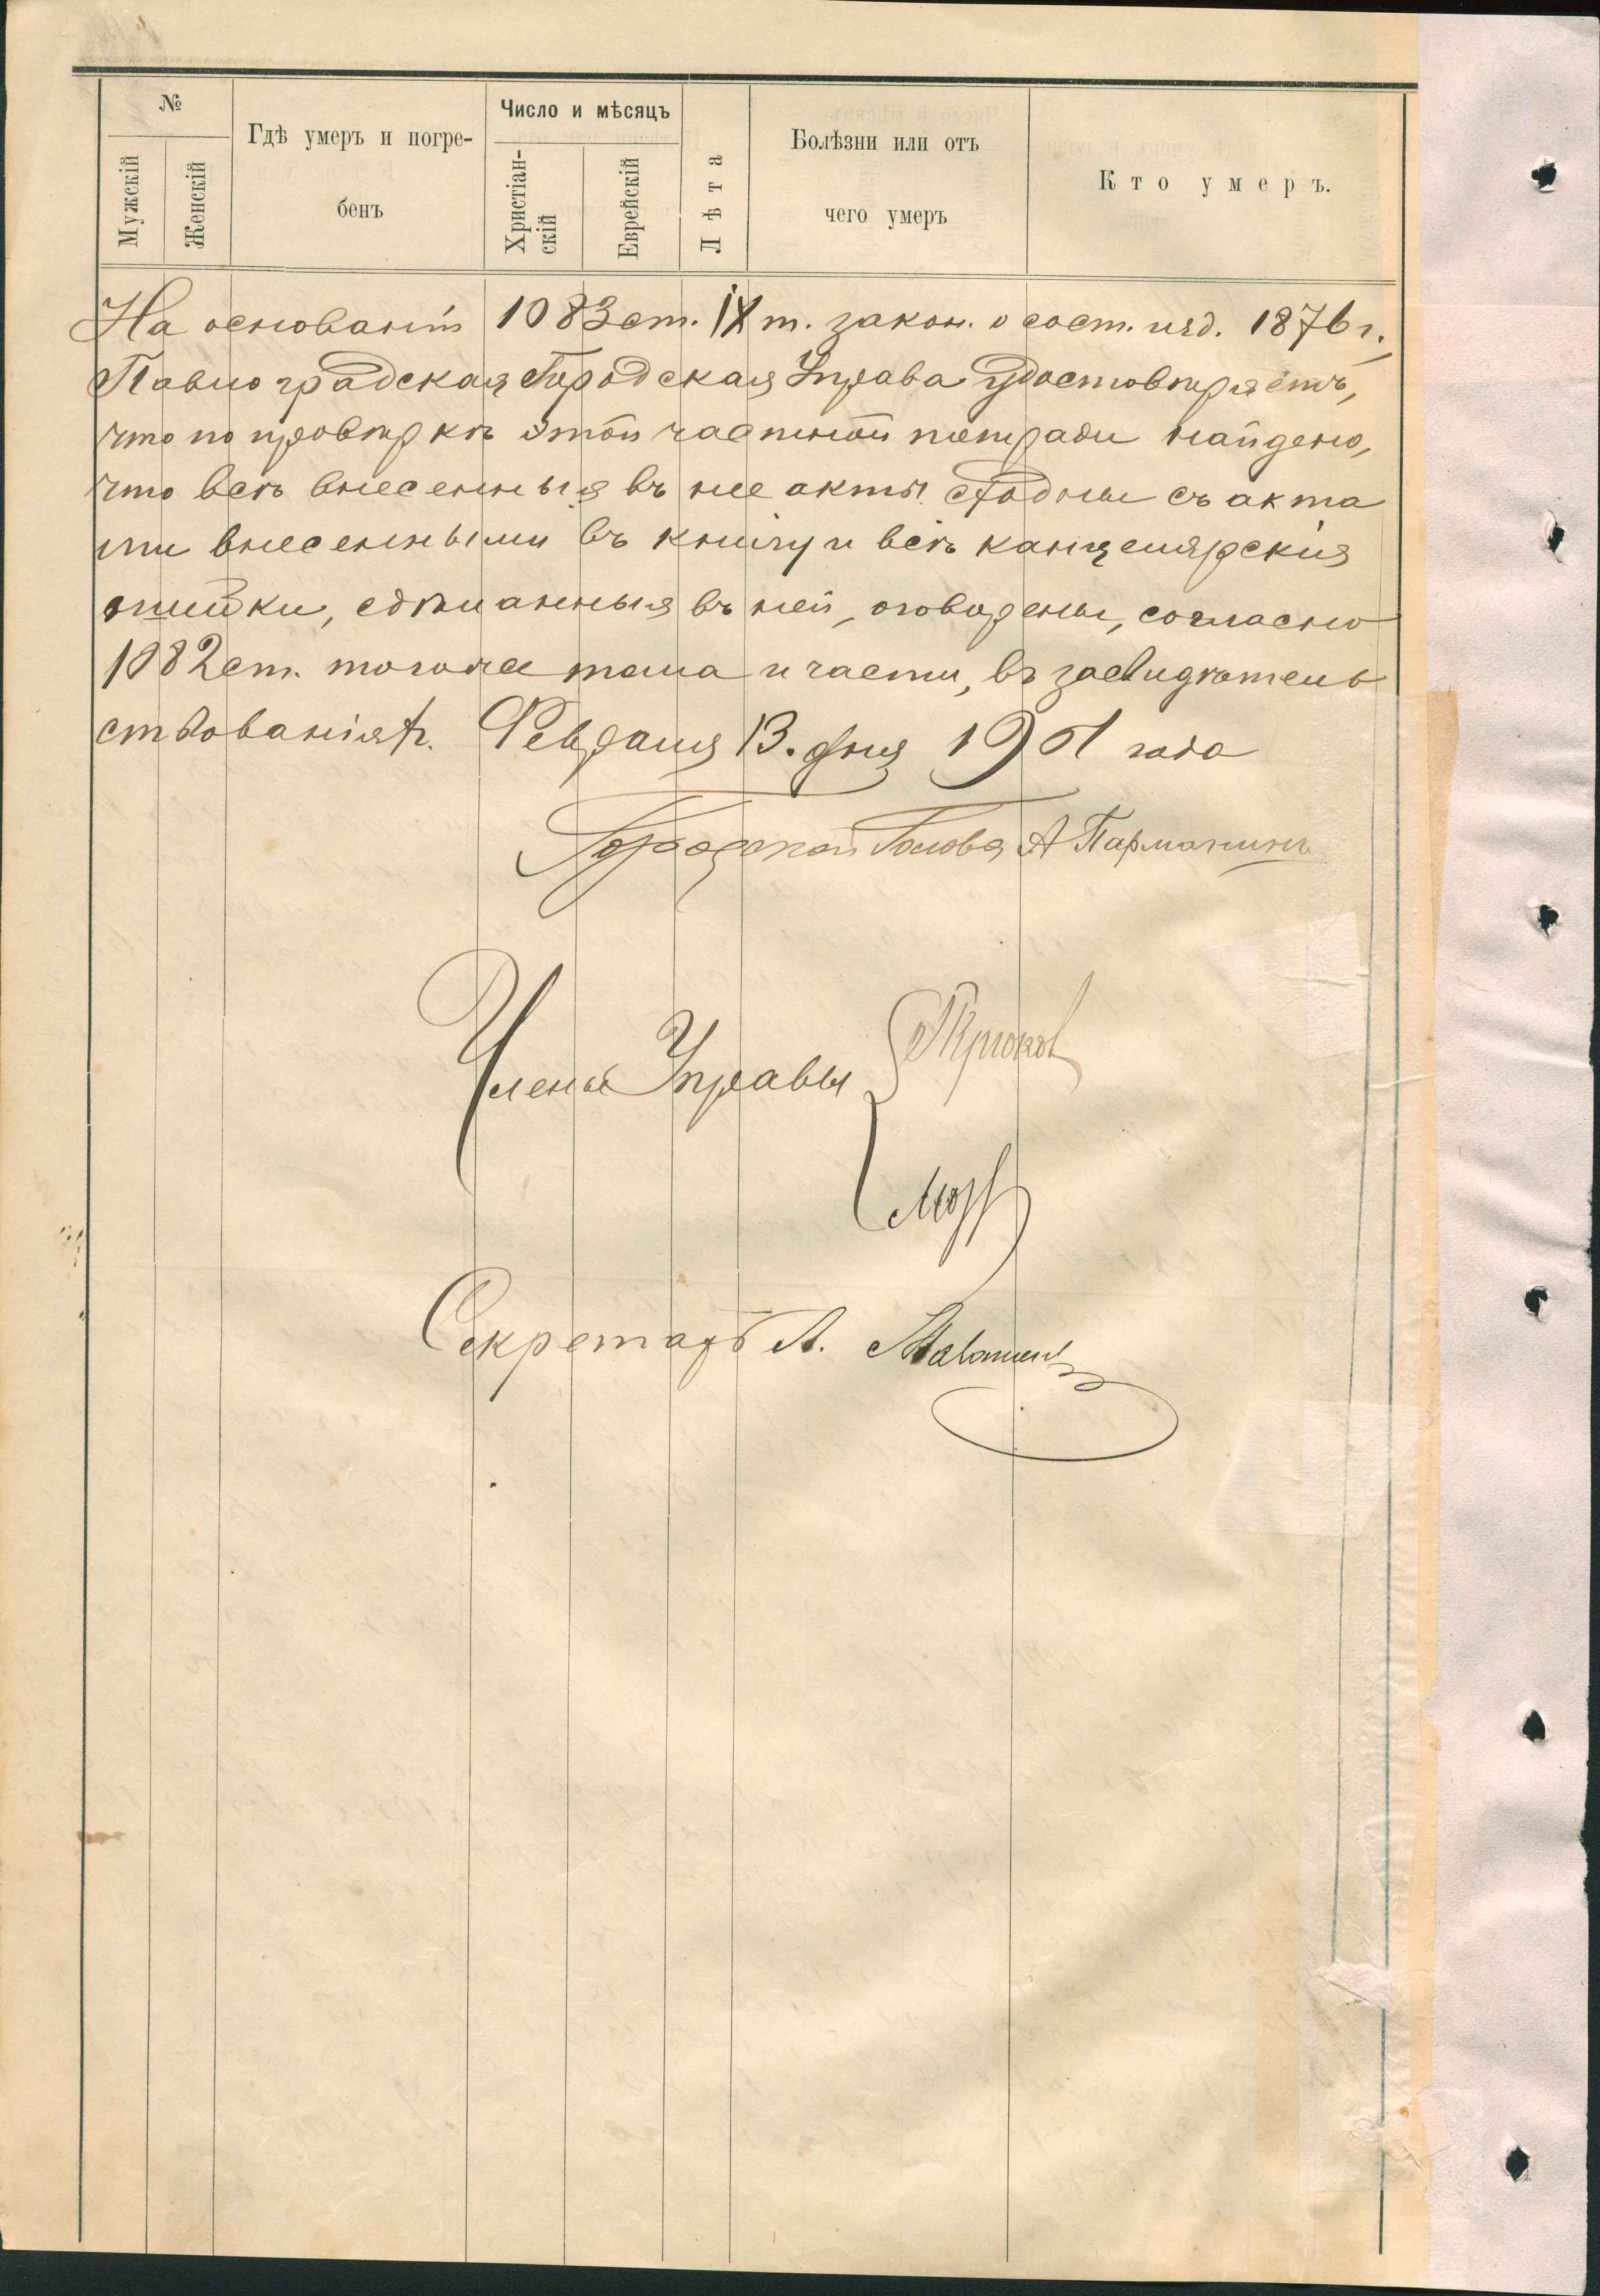 №
Мужскій
Женскій
Гдѣ умеръ и погре-
бенъ
Число и мѣсяцъ
Христіан-
скій
Еврейскій
Лѣта
Болѣзни или отъ
чего умеръ
Кто умеръ.
На основаніи 1083 ст. IX т. закон. о сост. изд. 1876 г.,
Павлоградская Городская Управа удостовѣряетъ,
что по провѣркѣ этой частной тетради найдено,
что всѣ внесенныя въ нее акты сходны съ акта
ми внесенными въ книгу и всѣ канцелярскія
ошибки, сдѣланныя въ ней, оговорены, согласно
1082 ст. того же тома и части, въ засвидѣтель
ствованіяхъ. Февраля 13. дня 1901 года
Городской Голова А
Члены Управы Крюков
Секретарь А.